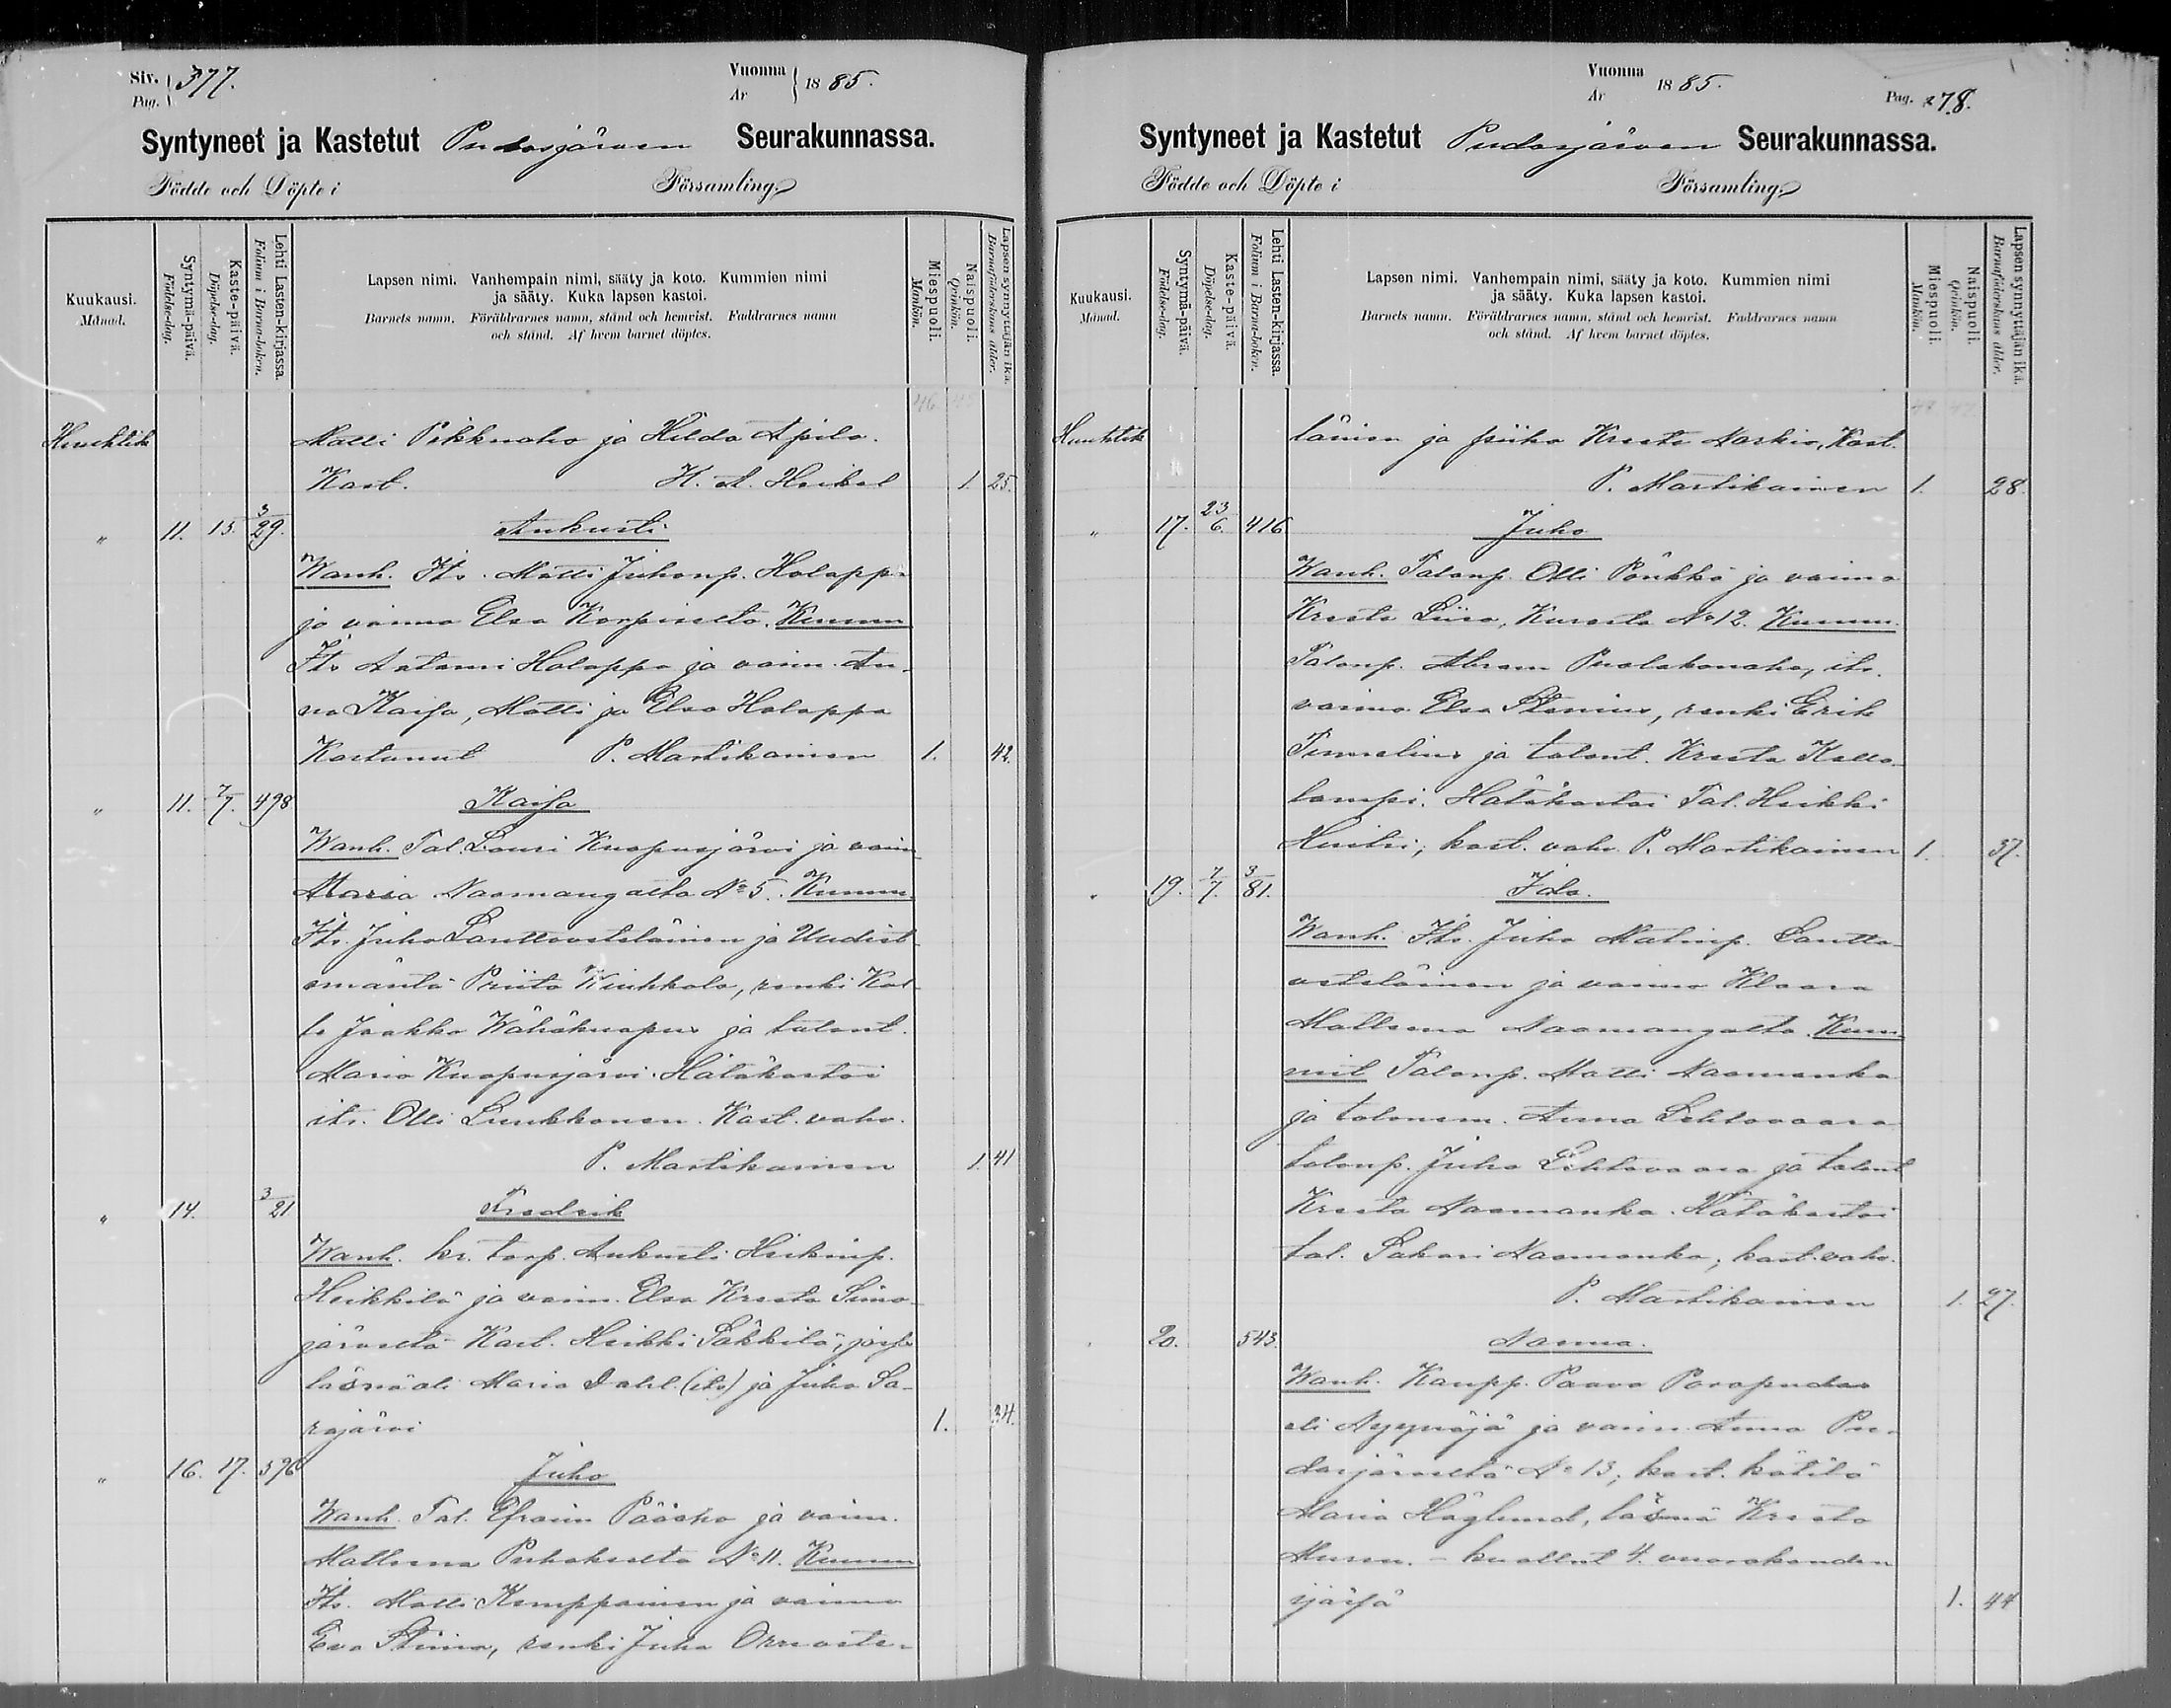 Siv. Pag. 377.
Vuonna År 1885.
Syntyneet ja Kastetut Pudasjärven Seurakunnassa.
Födde och Döpte i Församling.
Kuukausi. Månad.
Syntymä-päivä. Födelse-dag.
Kaste-päivä. Döpelse-dag.
Lehti Lasten-kirjassa. Folium i Barna-boken.
Lapsen nimi. Vanhempain nimi, sääty ja koto. Kummien nimi
ja sääty. Kuka lapsen kastoi.
Barnets namn. Föräldrarnes namn, stånd och hemvist. Faddrarnes namn
och stånd. Af hvem barnet döptes.
Miespuoli. Mankön.
Naispuoli. Qvinkön.
Lapsen synnyttäjän ikä. Barnaföderskans ålder.
46. 45
Huuhtik Matti Pikkuaho ja Hilda Apila.
Kast. H. A. Heikel 1. 25.
" 11. 15. 3/29. Aukusti
Wanh. Its. Matti Juhonp. Holappa
ja vaimo Elsa Korpiselta. Kumm
Its Antami Holappa ja vaim. An-
na Kaisa, Matti ja Elsa Holappa
Kastanut P. Martikainen 1. 42.
" 11. 7/7. 498 Kaisa
Wanh. Tal. Lauri Kuopusjärvi ja vaim
Maria Naamangalta No 5. Kumm.
Its. Juho Lanttoostoläinen ja Uudist-
emäntä Priita Kinkkala, renki Kal-
le Jaakko Wähäkuopus ja talont.
Maria Kuopusjärvi. Hätäkastoi
its. Olli Luukkonen. Kast. vahv.
P. Martikainen 1. 41
" 14. 3/21 Fredrik
Wanh. kr. torp. Aukusti Heikinp.
Heikkilä ja vaim. Elsa Kreeta Simo-
järveltä Kast. Heikki Säkkilä, jossa
läsnä oli Maria Dahl. (its) ja Juho Sa-
rajärvi 1. 34.
" 16. 17. 396 Juho
Wanh. Tal. Efraim Pääaho ja vaim.
Matleena Puhokselta No 11. Kumm
Its. Matti Kemppainen ja vaimo
Eva Stiina, renki Juho Orvaste-
Vuonna År 1885.
Pag. 378.
Syntyneet ja Kastetut Pudasjärven Seurakunnassa.
Födde och Döpte i Församling.
Kuukausi. Månad.
Syntymä-päivä. Födelse-dag.
Kaste-päivä. Döpelse-dag.
Lehti Lasten-kirjassa. Folium i Barna-boken.
Lapsen nimi. Vanhempain nimi, sääty ja koto. Kummien nimi
ja sääty. Kuka lapsen kastoi.
Barnets namn. Föräldrarnes namn, stånd och hemvist. Faddrarnes namn
och stånd. Af hvem barnet döptes.
Miespuoli. Mankön.
Naispuoli. Qvinkön.
Lapsen synnyttäjän ikä. Barnaföderskans ålder.
Huuhtik läinen ja piika Kreeta Narkio, Kast.
P. Martikainen 1. 28.
" 17. 23/6. 416 Juho
Wanh. Talonp. Olli Pönkkö ja vaimo
Kreeta Liisa, Kurelta No 12. Kumm.
Talonp. Abram Puolakanaho, its.
vaimo Elsa Stenius, renki Erik
Timmelins ja talont. Kreeta Kallo-
lampi. Hätäkastoi Tal. Heikki
Huitsi, kast. vahv. P. Martikainen 1. 37.
" 19. 7/7. 3/81. Ida.
Wanh. Its. Juho Matinp. Lantto-
ostoläinen ja vaimo Klaara
Matleena Naamangalta. Kum-
mit Talonp. Matti Naamanka
ja talonem. Anna Lehtovaara
talonp. Juho Lehtovaara ja talont
Kreeta Naamanka. Hätäkastoi
tal. Sakari Naamanka, kast. vahv.
P. Martikainen 1. 27.
" 20. 543. Nanna.
Wanh. Kaupp. Paavo Poropudas
eli Nyynäjä ja vaim. Anna Pu-
dasjärveltä No 13, kast. kätilö
Maria Häglund, läsnä Kreeta
Mursu. – kuollut 4. vuorokauden
ijässä 1. 44